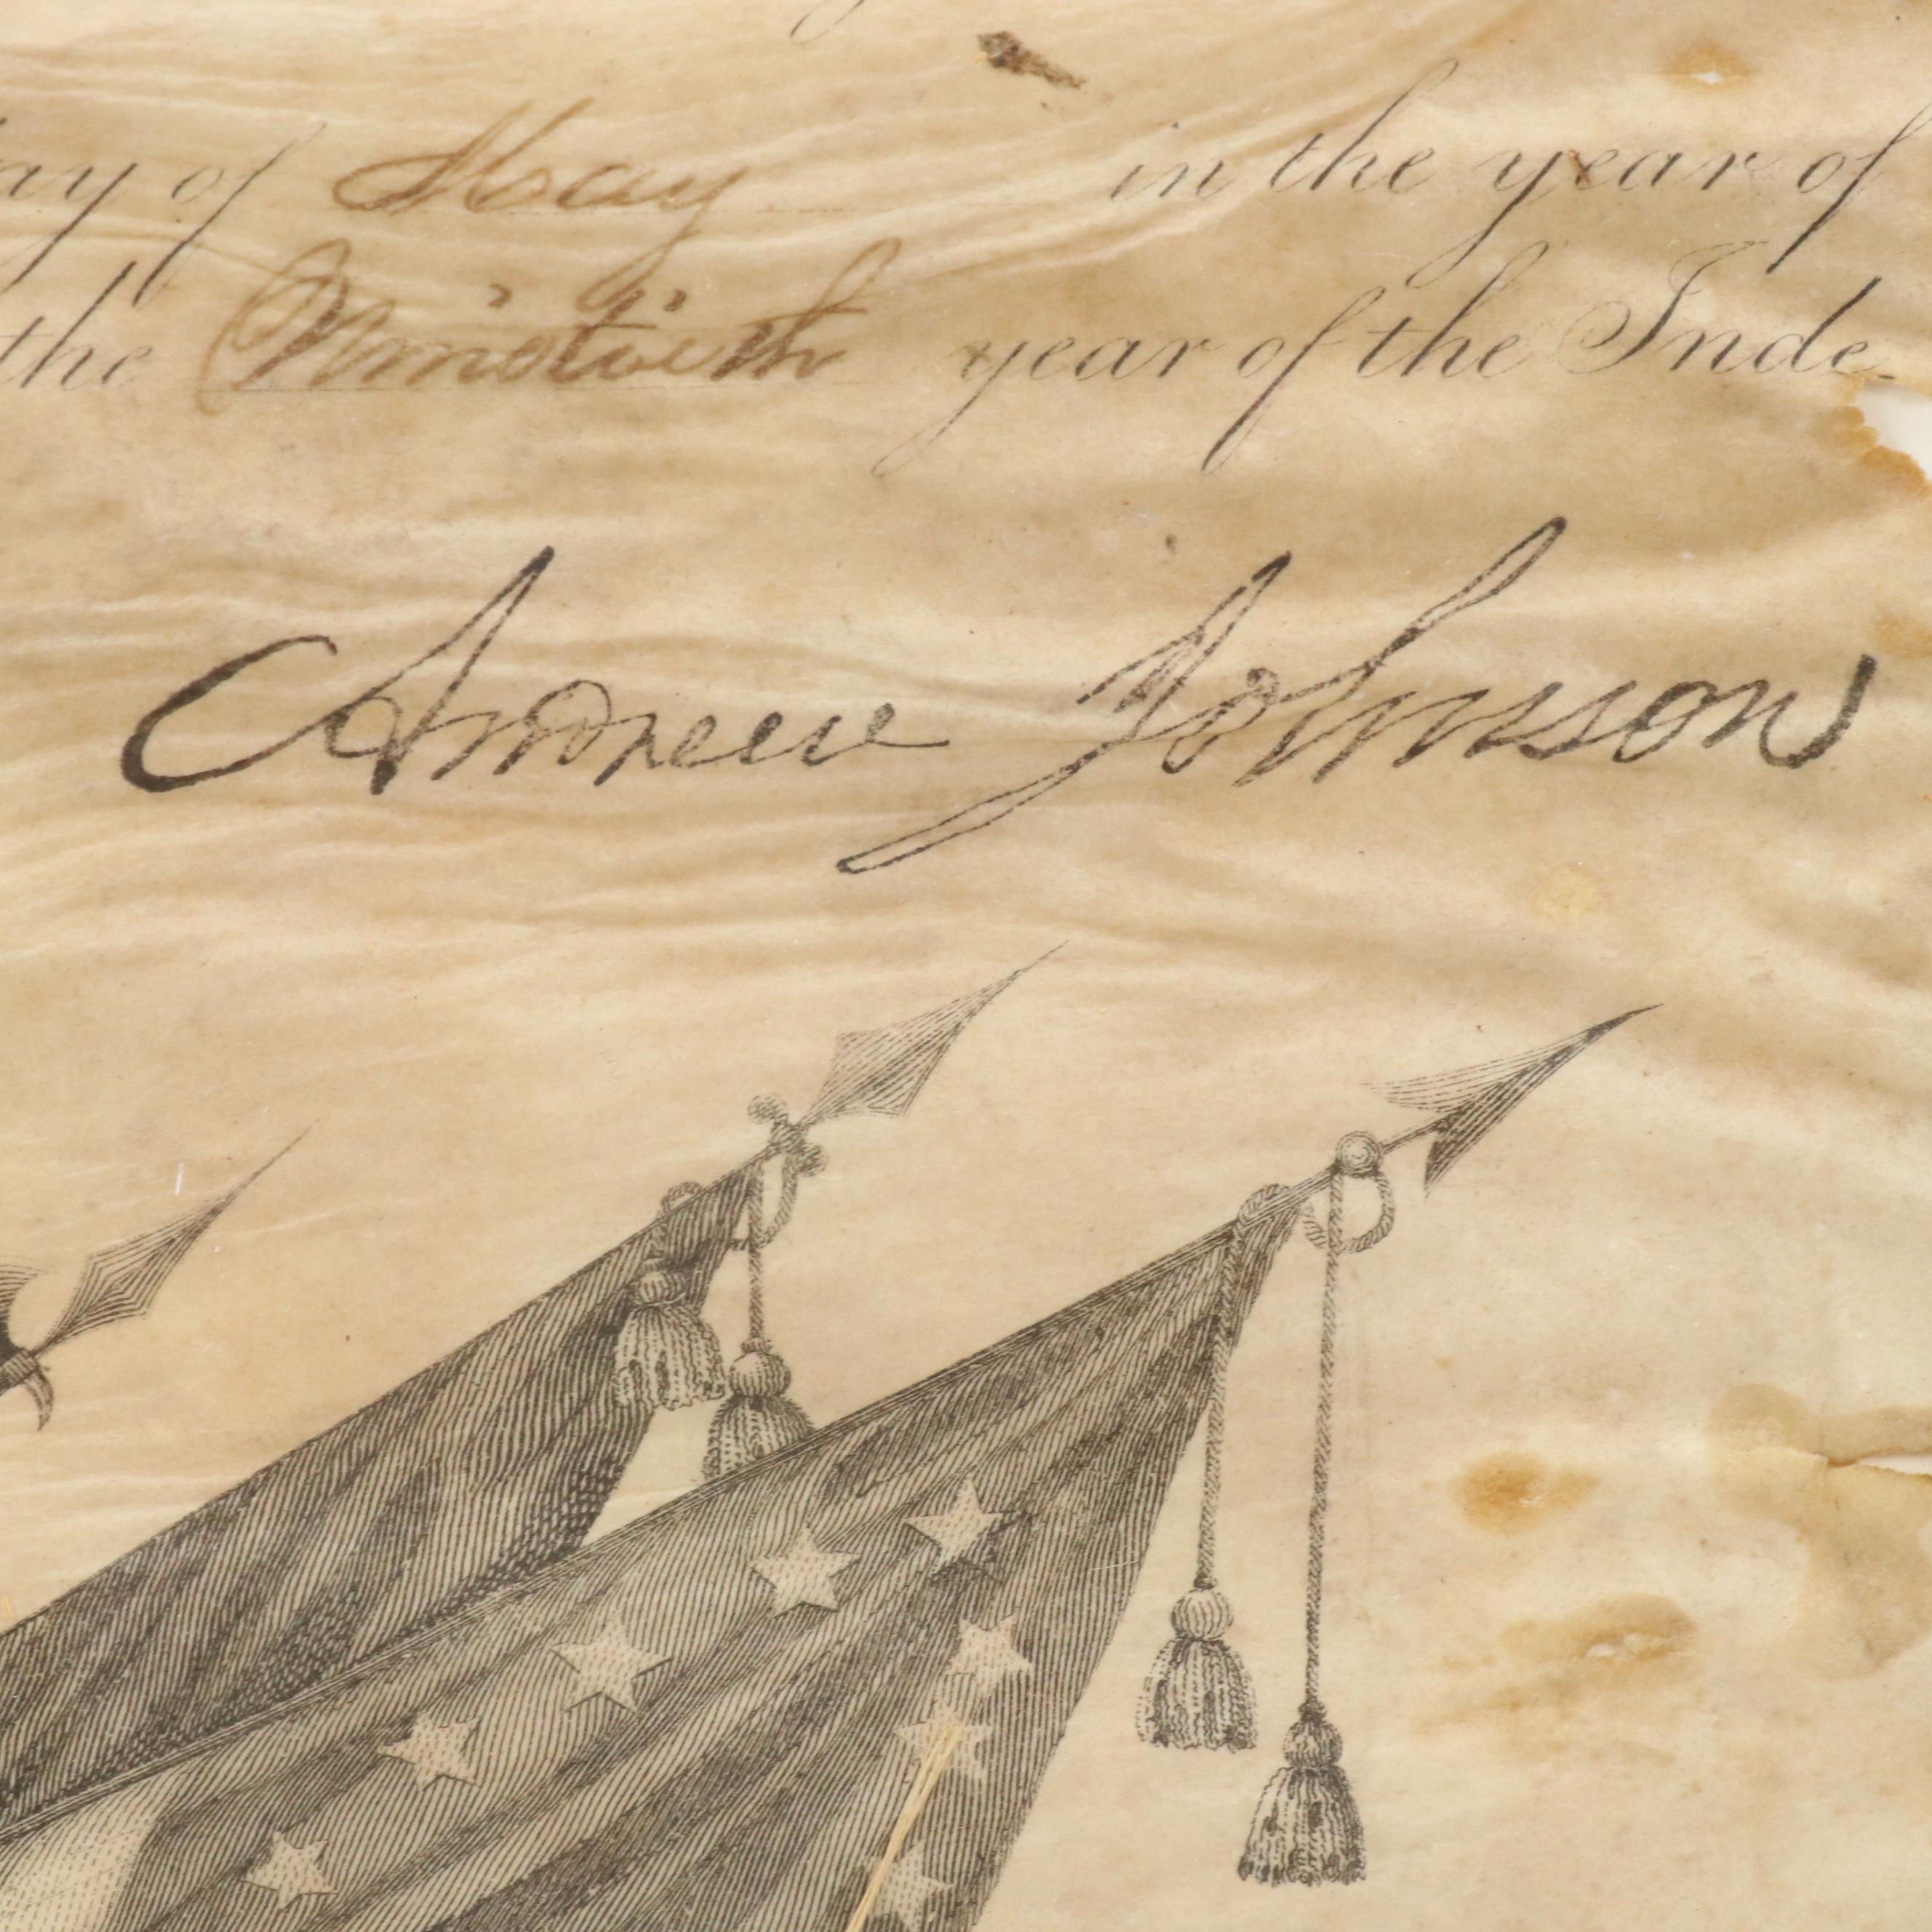 ay of May in the year of
the Ninetieth year of the Inde
Andrew Johnson